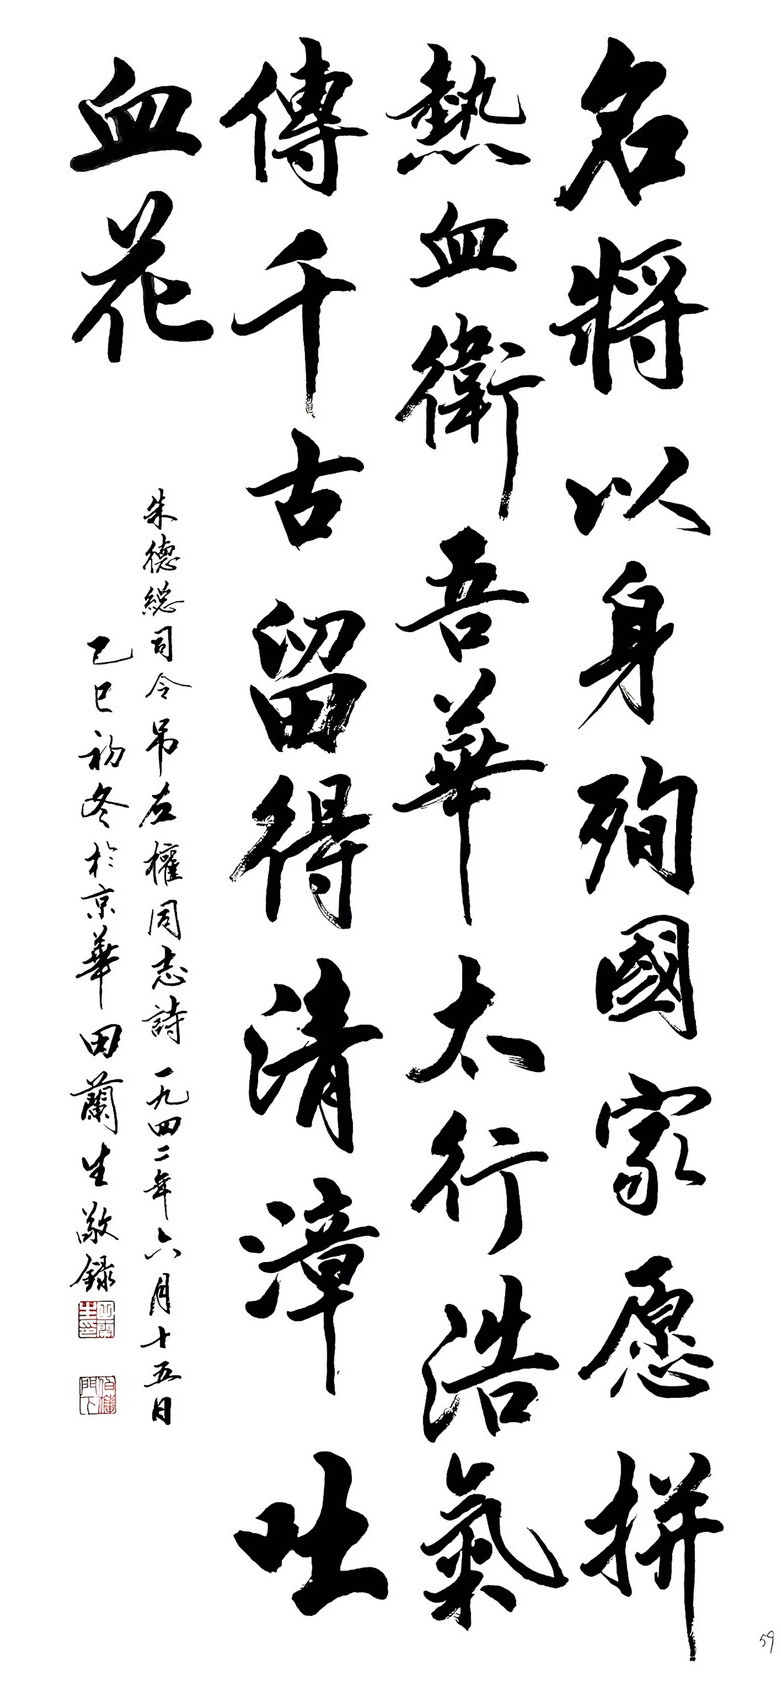 名將以身殉國家愿拼
熱血衛吾華太行浩氣
傳千古留得清漳吐
血花
朱德總司令吊左權同志詩一九四二年六月十五日
己巳初冬於京華田蘭生敬録
59